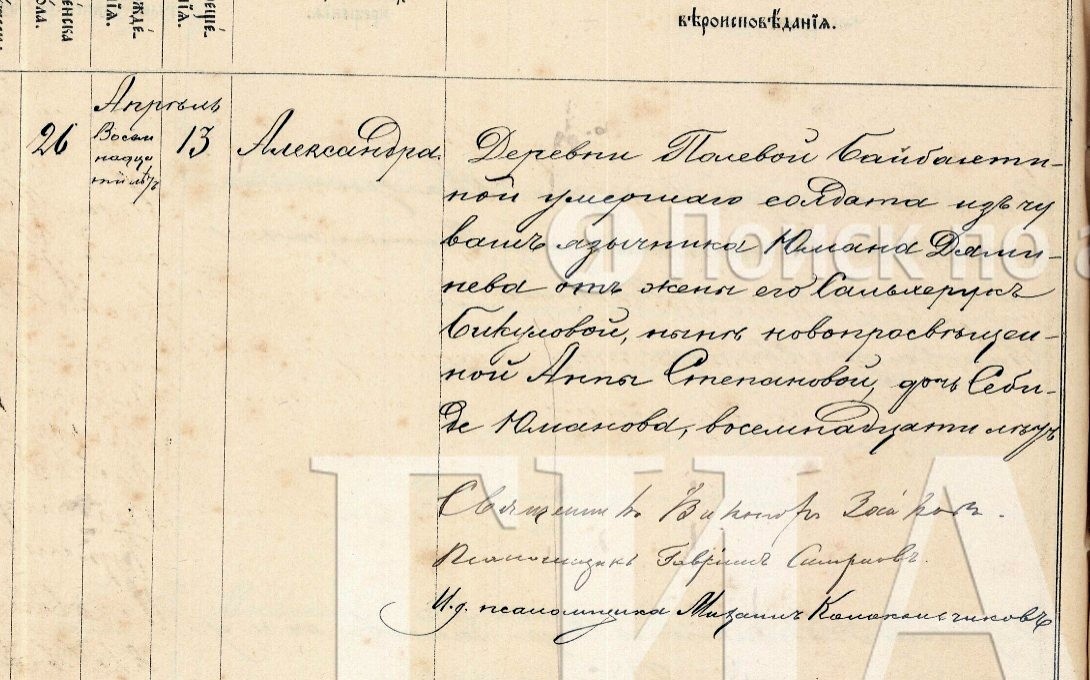 ЕНСКА
ОЛА.
ЖДЕ-
НІЯ.
РЕЩЕ-
НІЯ.
вѣроисповѣданія.
Апрѣль
26
Восем
надца
ти лѣтъ
13
Александра.
Деревни Полевой Байбахти-
ной умершаго солдата изъ чу
вашъ язычника Юмана Дями-
нева отъ жены его Сальхерукъ
Бикуловой, нынѣ новопросвѣщен-
ной Анны Степановой, дочь Себи-
де Юманова, восемнадцати лѣтъ
Священникъ Викторъ Зайковъ.
Псаломщикъ Гавріилъ Смирновъ.
И.д. псаломщика Михаилъ Колокольчиковъ
Я Поиск по а
ГИА